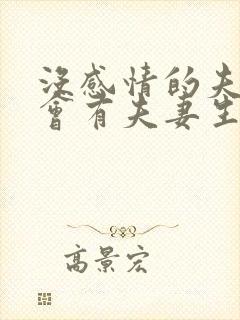 沒感情的夫
會有夫妻生
高景宏